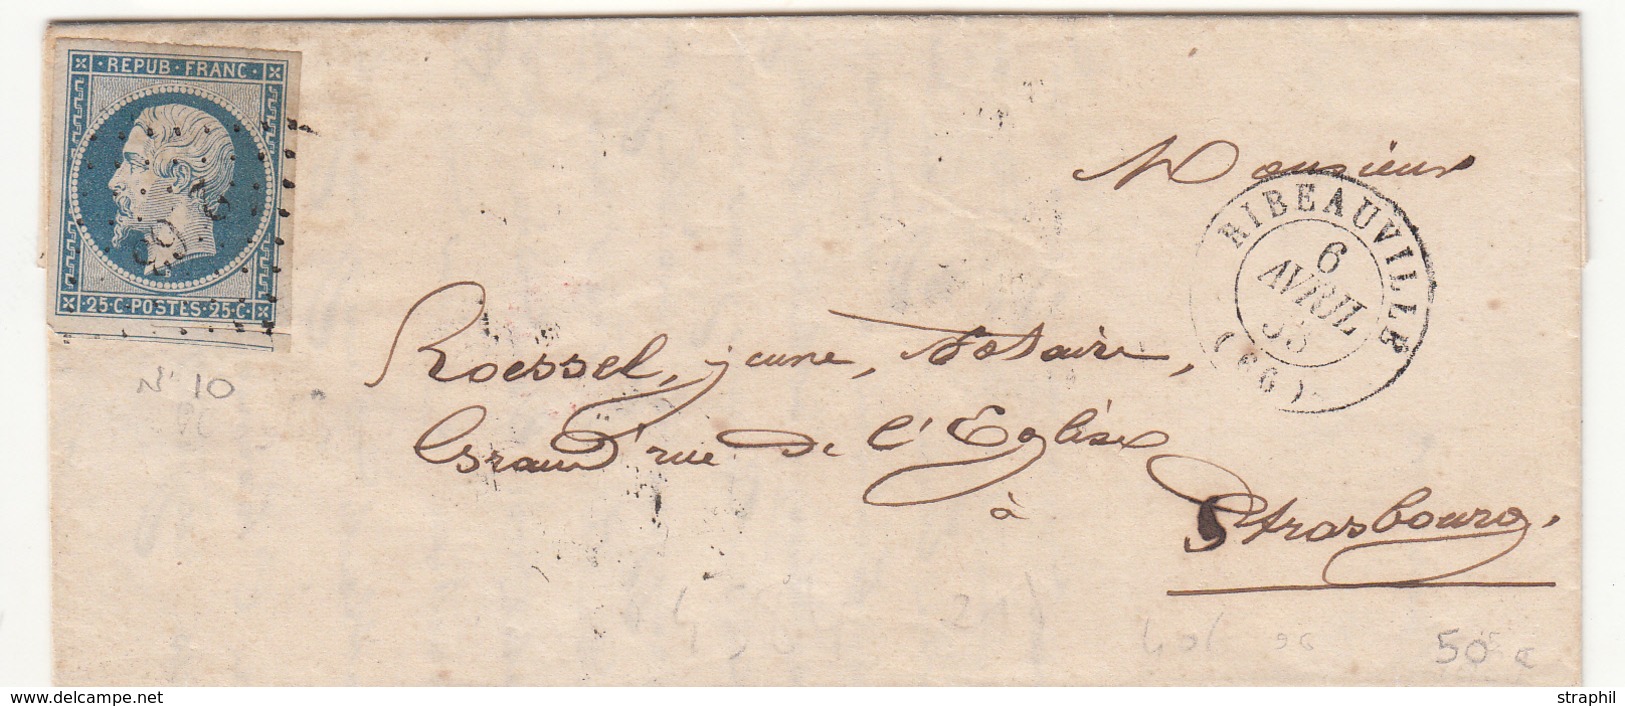 REPUB FRANC
25·C·POSTES·25·C·
Monsieur
RIBEAUVILLE
6
AVRIL
53
(66)
Roessel, jeune, Notaire,
Grand'rue de l'Eglise
à
Strasbourg.
N° 10
50 €
www.delcampe.net
straphil